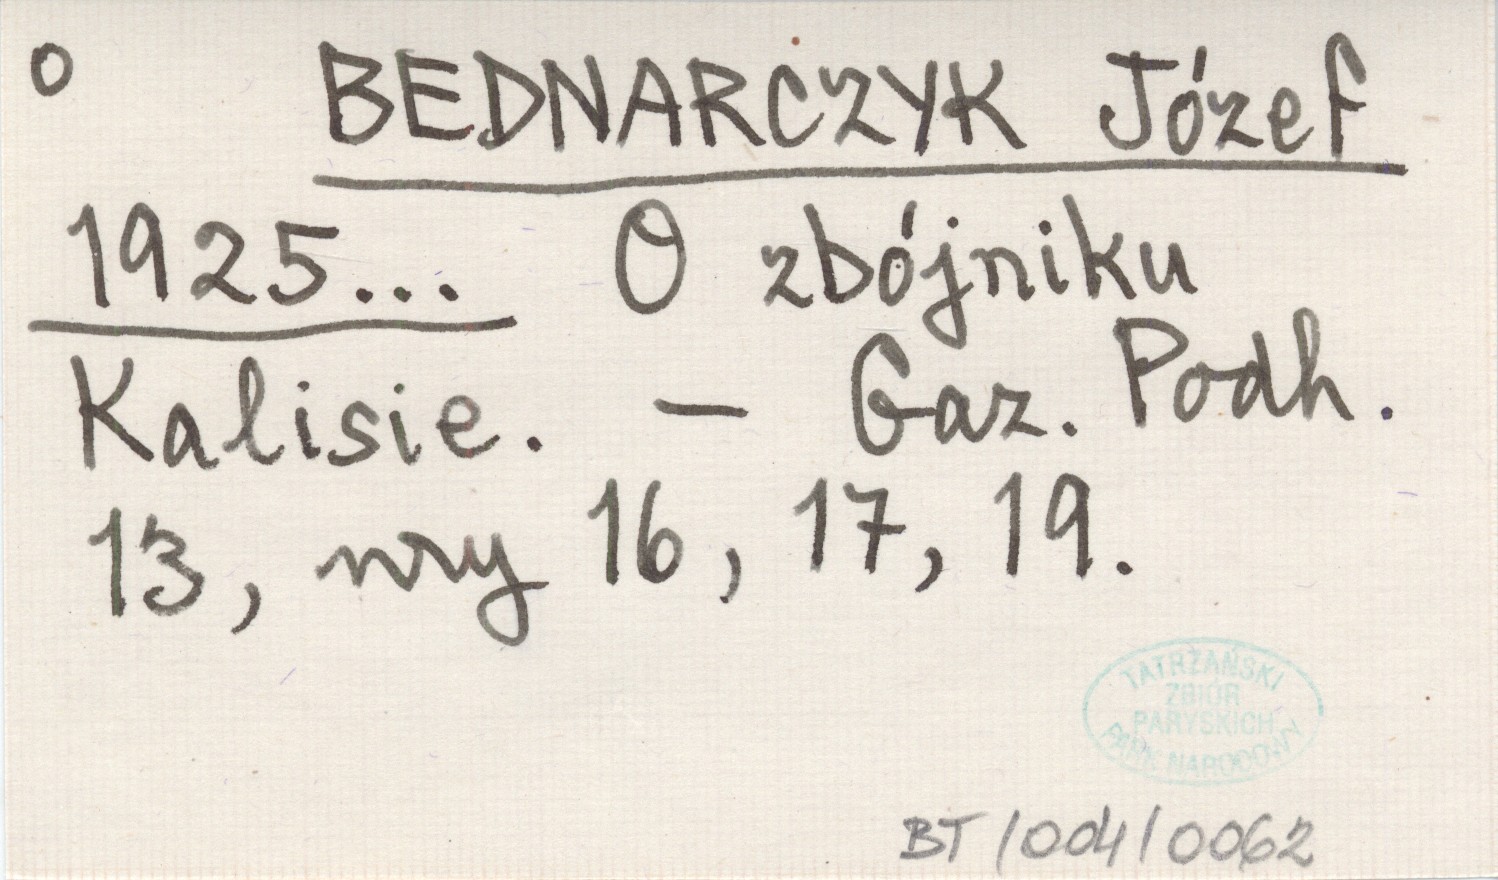 o BEDNARCZYK Józef
1925... O zbójniku
Kalisie. — Gaz. Podh.
13, nry 16, 17, 19.
TATRZAŃSKI
ZBIÓR
PARYSKICH
PARK NARODOWY
BT/004/0062